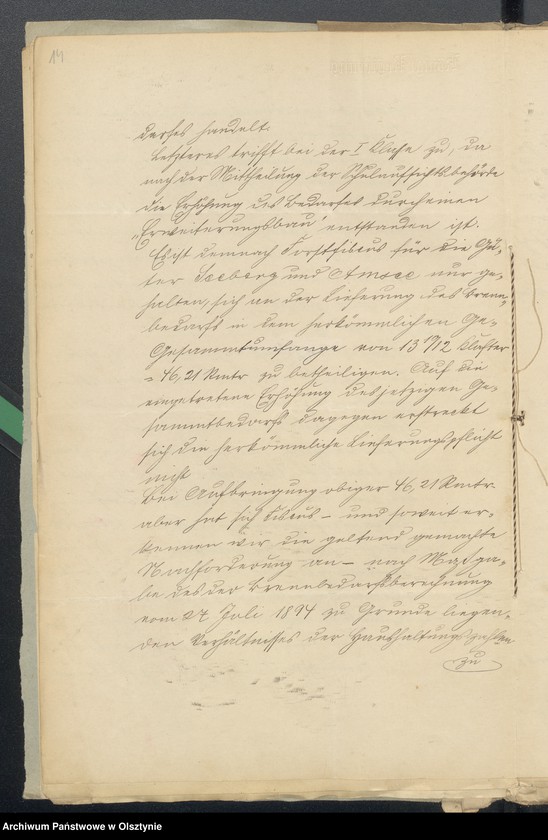 14
darfes handelt.
Letzteres trifft bei der I Klasse zu, da
nach der Mittheilung der Schulaufsichtsbehörde
die Erhöhung des Bedarfes durch einen
„Erweiterungsbau“ entstanden ist.
Es ist demnach Forstfiscus für die Gü-
ter Seeberg und Amsee nur ge-
halten, sich an der Lieferung des Brenn-
bedarfs in dem herkömmlichen Ge-
Gesammtumfange von 13 10/12 Klafter
= 46,21 Rmtr zu betheiligen. Auf die
eingetretene Erhöhung des jetzigen Ge-
sammtbedarfs dagegen erstreckt
sich die herkömmliche Lieferungspflicht
nicht
Bei Aufbringung obiger 46,21 Rmtr
aber hat sich Fiscus – und soweit er-
kennen wir die geltend gemachte
Nachforderung an – nach Maßga-
be des der Brennbedarfsberechnung
vom 27 Juli 1894 zu Grunde liegen-
den Verhältnisses der Haushaltungszahlen
zu
Archiwum Państwowe w Olsztynie